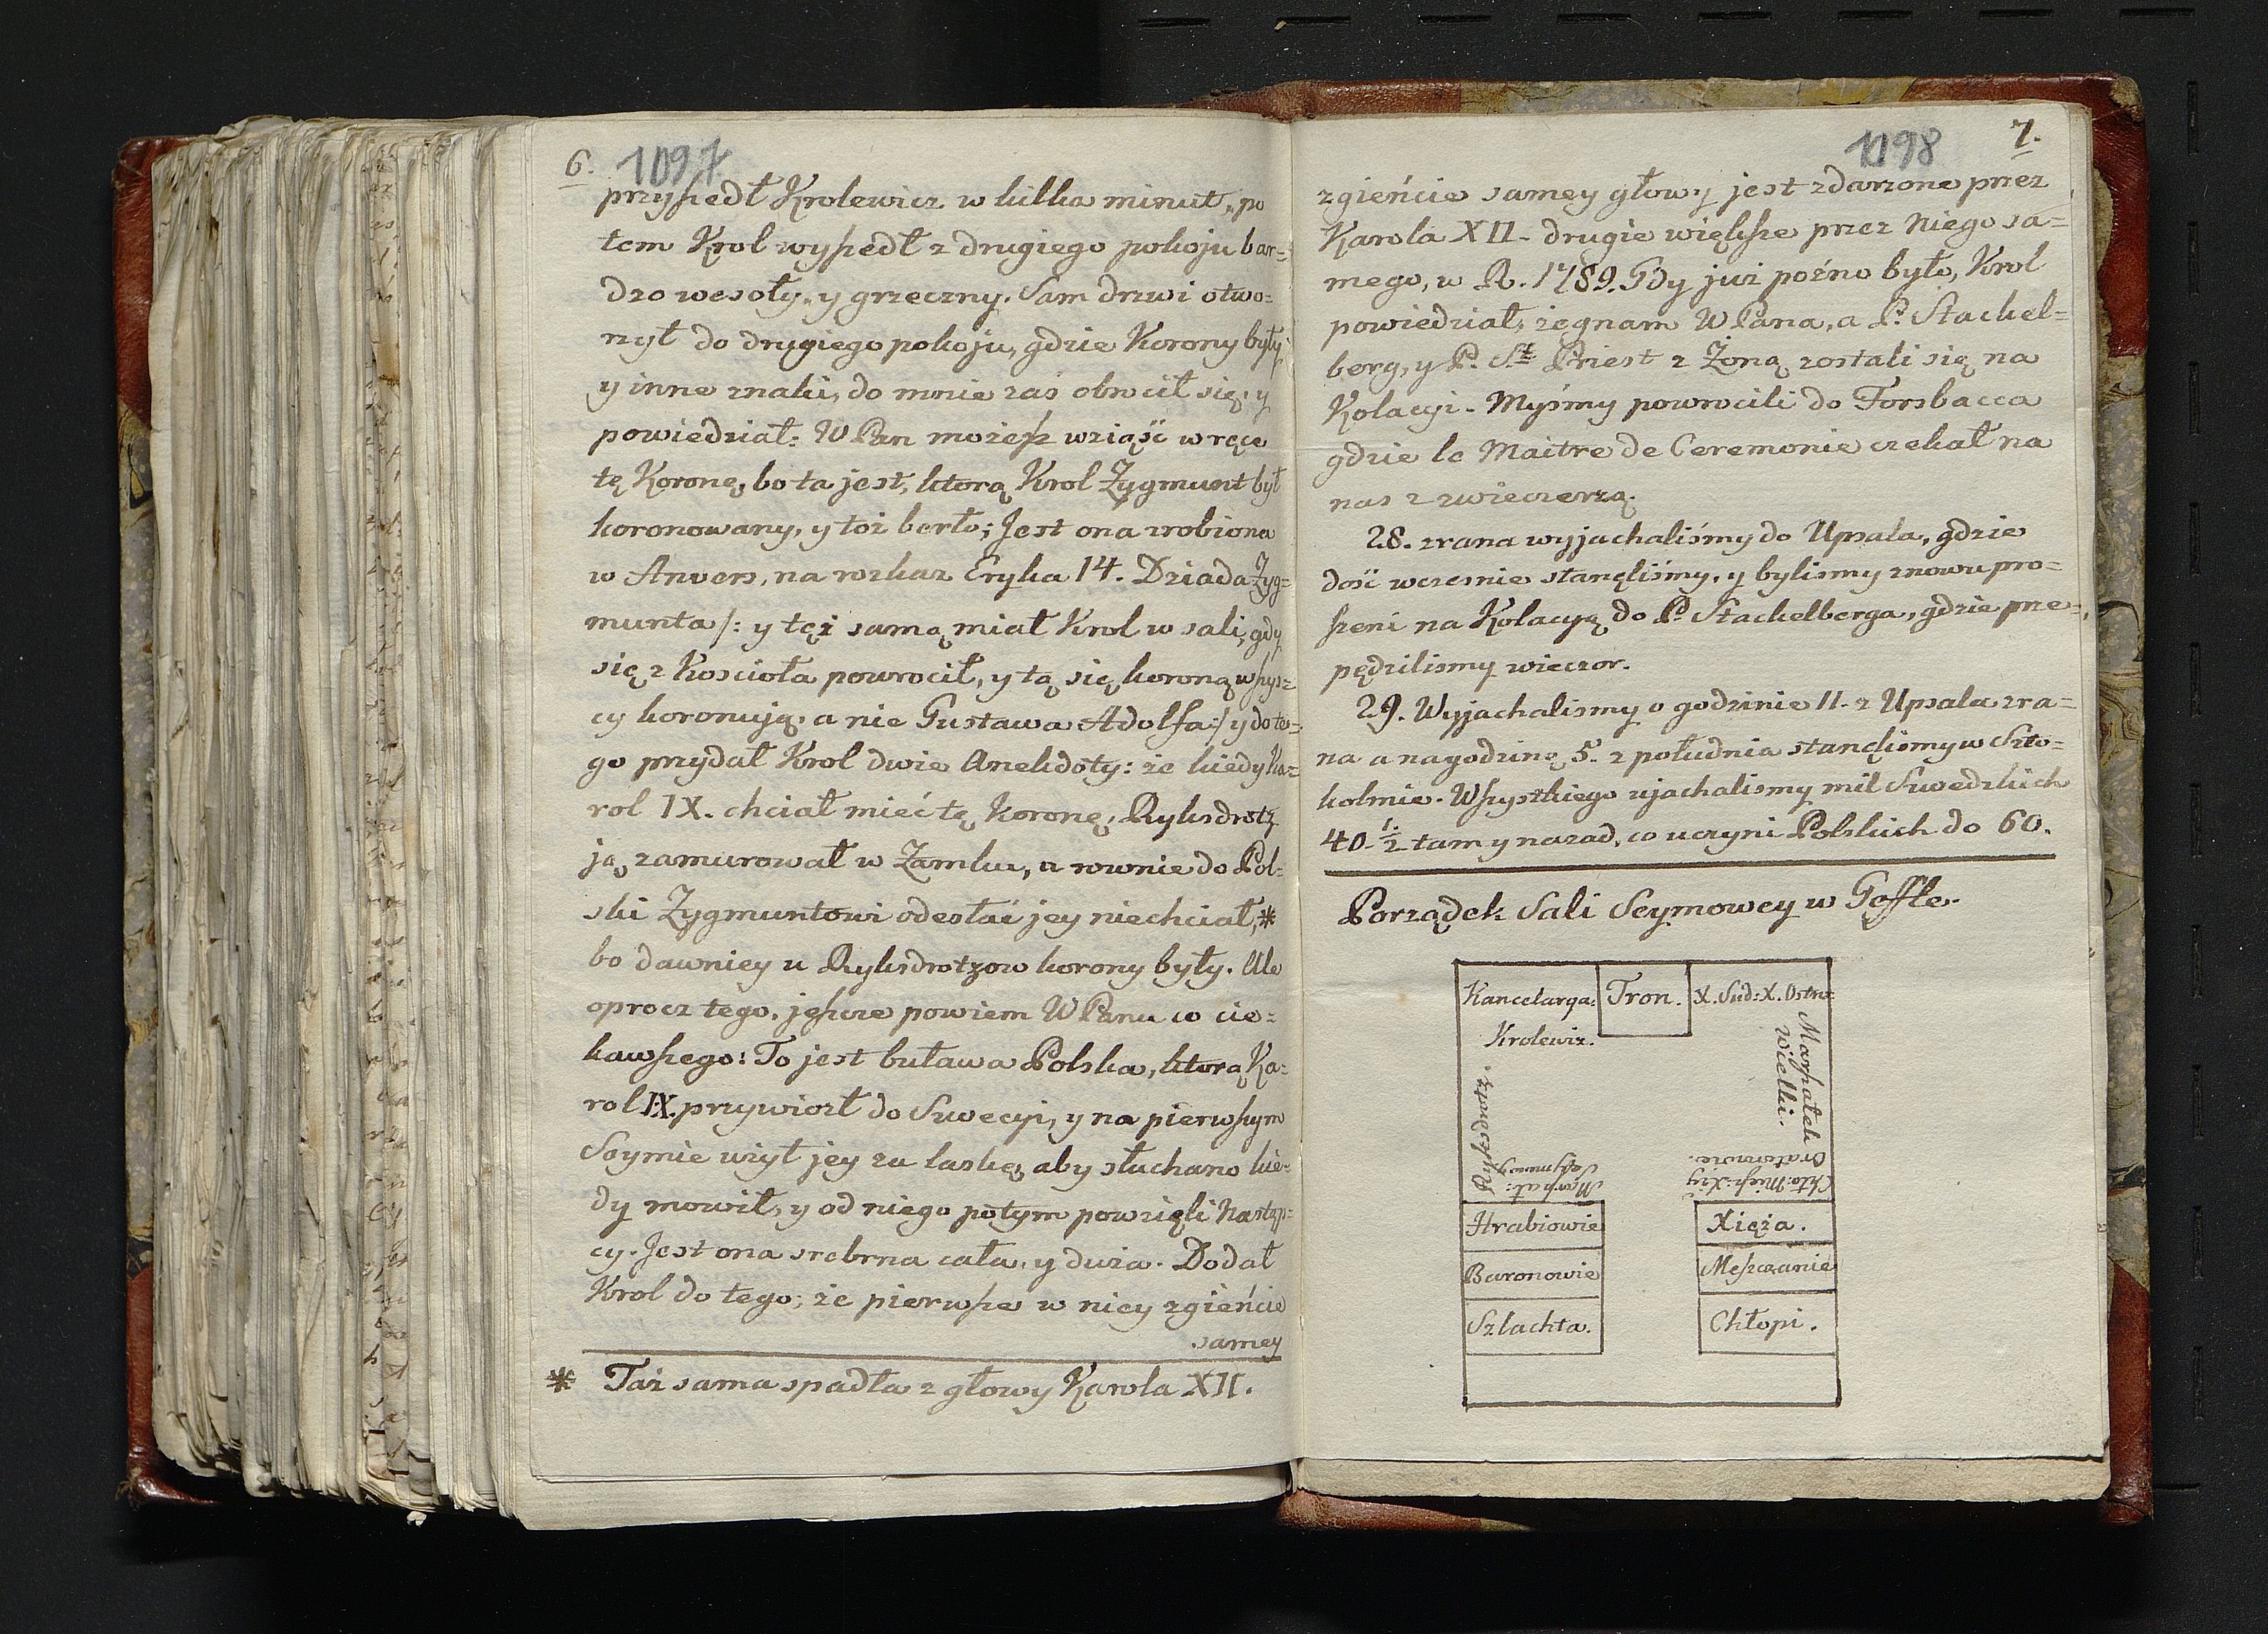 6. 1097
przyszedł Krolewicz w kilka minut, po
tem Krol wyszedł z drugiego pokoju bar=
dzo wesoły, y grzeczny. Sam drzwi otwo=
rzył do drugiego pokoju, gdzie Korony były
y inne znaki, do mnie zaś obrocił się, y
powiedział: WPan możesz wziąść w ręce
tę Koronę, bo ta jest, ktorą Krol Zygmunt był
koronowany, y toż berło; Jest ona zrobiona
w Anvers, na rozkaz Eryka 14. Dziada Zyg=
munta /: y tęż samą miał Krol w sali, gdy
się z Koscioła powrocił, y tą się koroną wszys=
cy koronują, a nie Gustawa Adolfa:/ y do te=
go przydał Krol dwie Anekdoty: że kiedy Ka=
rol IX. chciał mieć tę Koronę, Ryksdrotz
ją, zamurował w Zamku, a rownie do Pol=
ski Zygmuntowi odesłać jey niechciał,*
bo dawniey u Ryksdrotzow korony były. Ale
oprocz tego, jeszcze powiem WPanu co cie=
kawszego: To jest buława Polska, ktorą Ka=
rol IX. przywiozł do Szwecyi, y na pierwszym
Seymie użył jey za laskę, aby słuchano kie=
dy mowił, y od niego potym powzięli Następ=
cy. Jest ona srebrna cała, y duża. Dodał
Krol do tego; że pierwsze w niey zgieńcie
samey
* Taż sama spadła z głowy Karola XII.
1098 7.
zgieńcie samey głowy jest zdarzone przez
Karola XII- drugie większe przez Niego sa=
mego, w R. 1789. Gdy już poźno było, Krol
powiedział, żegnam WPana, a P. Stackel=
berg, y P. St. Priest z Żoną zostali się na
Kolacyi. Myśmy powrocili do Forsbacca
gdzie le Maitre de Ceremonie czekał na
nas z wieczerzą.
28. zrana wyjachaliśmy do Upsala, gdzie
dość wczesnie stanęliśmy, y bylismy znowu pro=
szeni na Kolacyą do P. Stackelberga, gdzie prze=
pędzilismy wieczor.
29. Wyjachalismy o godzinie 11. z Upsala zra=
na a na godzinę 5. z południa stanęlismy w Szto=
kolmie. Wszystkiego ujachalismy mil Swedzkich
40 1/2 tam y nazad, co uczyni Polskich do 60.
Porządek Sali Seymowey w Geffle.
Kancelarya: Tron. X. Sud: X. Ostro:
Krolewic.
Marszałek
Wielki.
Ryksdrotz.
Marszał:
Seymowy
Chło: Miesz: Xięż
Oratorowie.
Hrabiowie Xięża.
Baronowie Meszczanie
Szlachta. Chłopi.